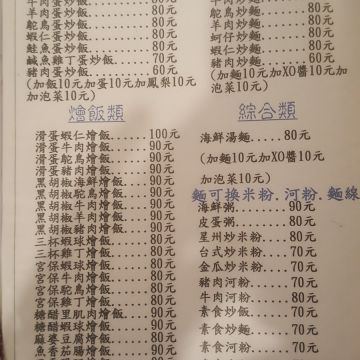 牛肉蛋炒飯......80元
羊肉蛋炒飯......80元
鴕鳥蛋炒飯......80元
蝦仁蛋炒飯......80元
鮭魚蛋炒飯......80元
鹹魚雞丁蛋炒飯..70元
豬肉蛋炒飯......60元
(加飯10元加蛋10元加鳳梨10元
加泡菜10元)
燴飯類
滑蛋蝦仁燴飯......100元
滑蛋牛肉燴飯......90元
滑蛋鴕鳥燴飯......90元
滑蛋豬肉燴飯......80元
黑胡椒海鮮燴飯....90元
黑胡椒鴕鳥燴飯....90元
黑胡椒牛肉燴飯....90元
黑胡椒羊肉燴飯....90元
黑胡椒豬肉燴飯....80元
三杯蝦球燴飯......90元
三杯雞丁燴飯......80元
宮保蝦球燴飯......90元
宮保牛肉燴飯......90元
宮保鴕鳥燴飯......90元
宮保雞丁燴飯......80元
糖醋里肌肉燴飯....90元
糖醋蝦球燴飯......90元
麻婆豆腐燴飯......80元
魚香茄腸燴飯
鴕鳥炒麵
羊肉炒麵......80元
蚵仔炒麵......80元
蝦仁炒麵......80元
豬肉炒麵......60元
(加麵10元加XO醬10元加
泡菜10元)
綜合類
海鮮湯麵....80元
(加麵10元加XO醬10元
加泡菜10元)
麵可換米粉.河粉.麵線
海鮮粥......90元
皮蛋粥......80元
星州炒米粉....80元
台式炒米粉....70元
金瓜炒米粉....70元
豬肉河粉......70元
牛肉河粉......80元
素食炒飯......70元
素食炒麵......70元
素食河粉......70元